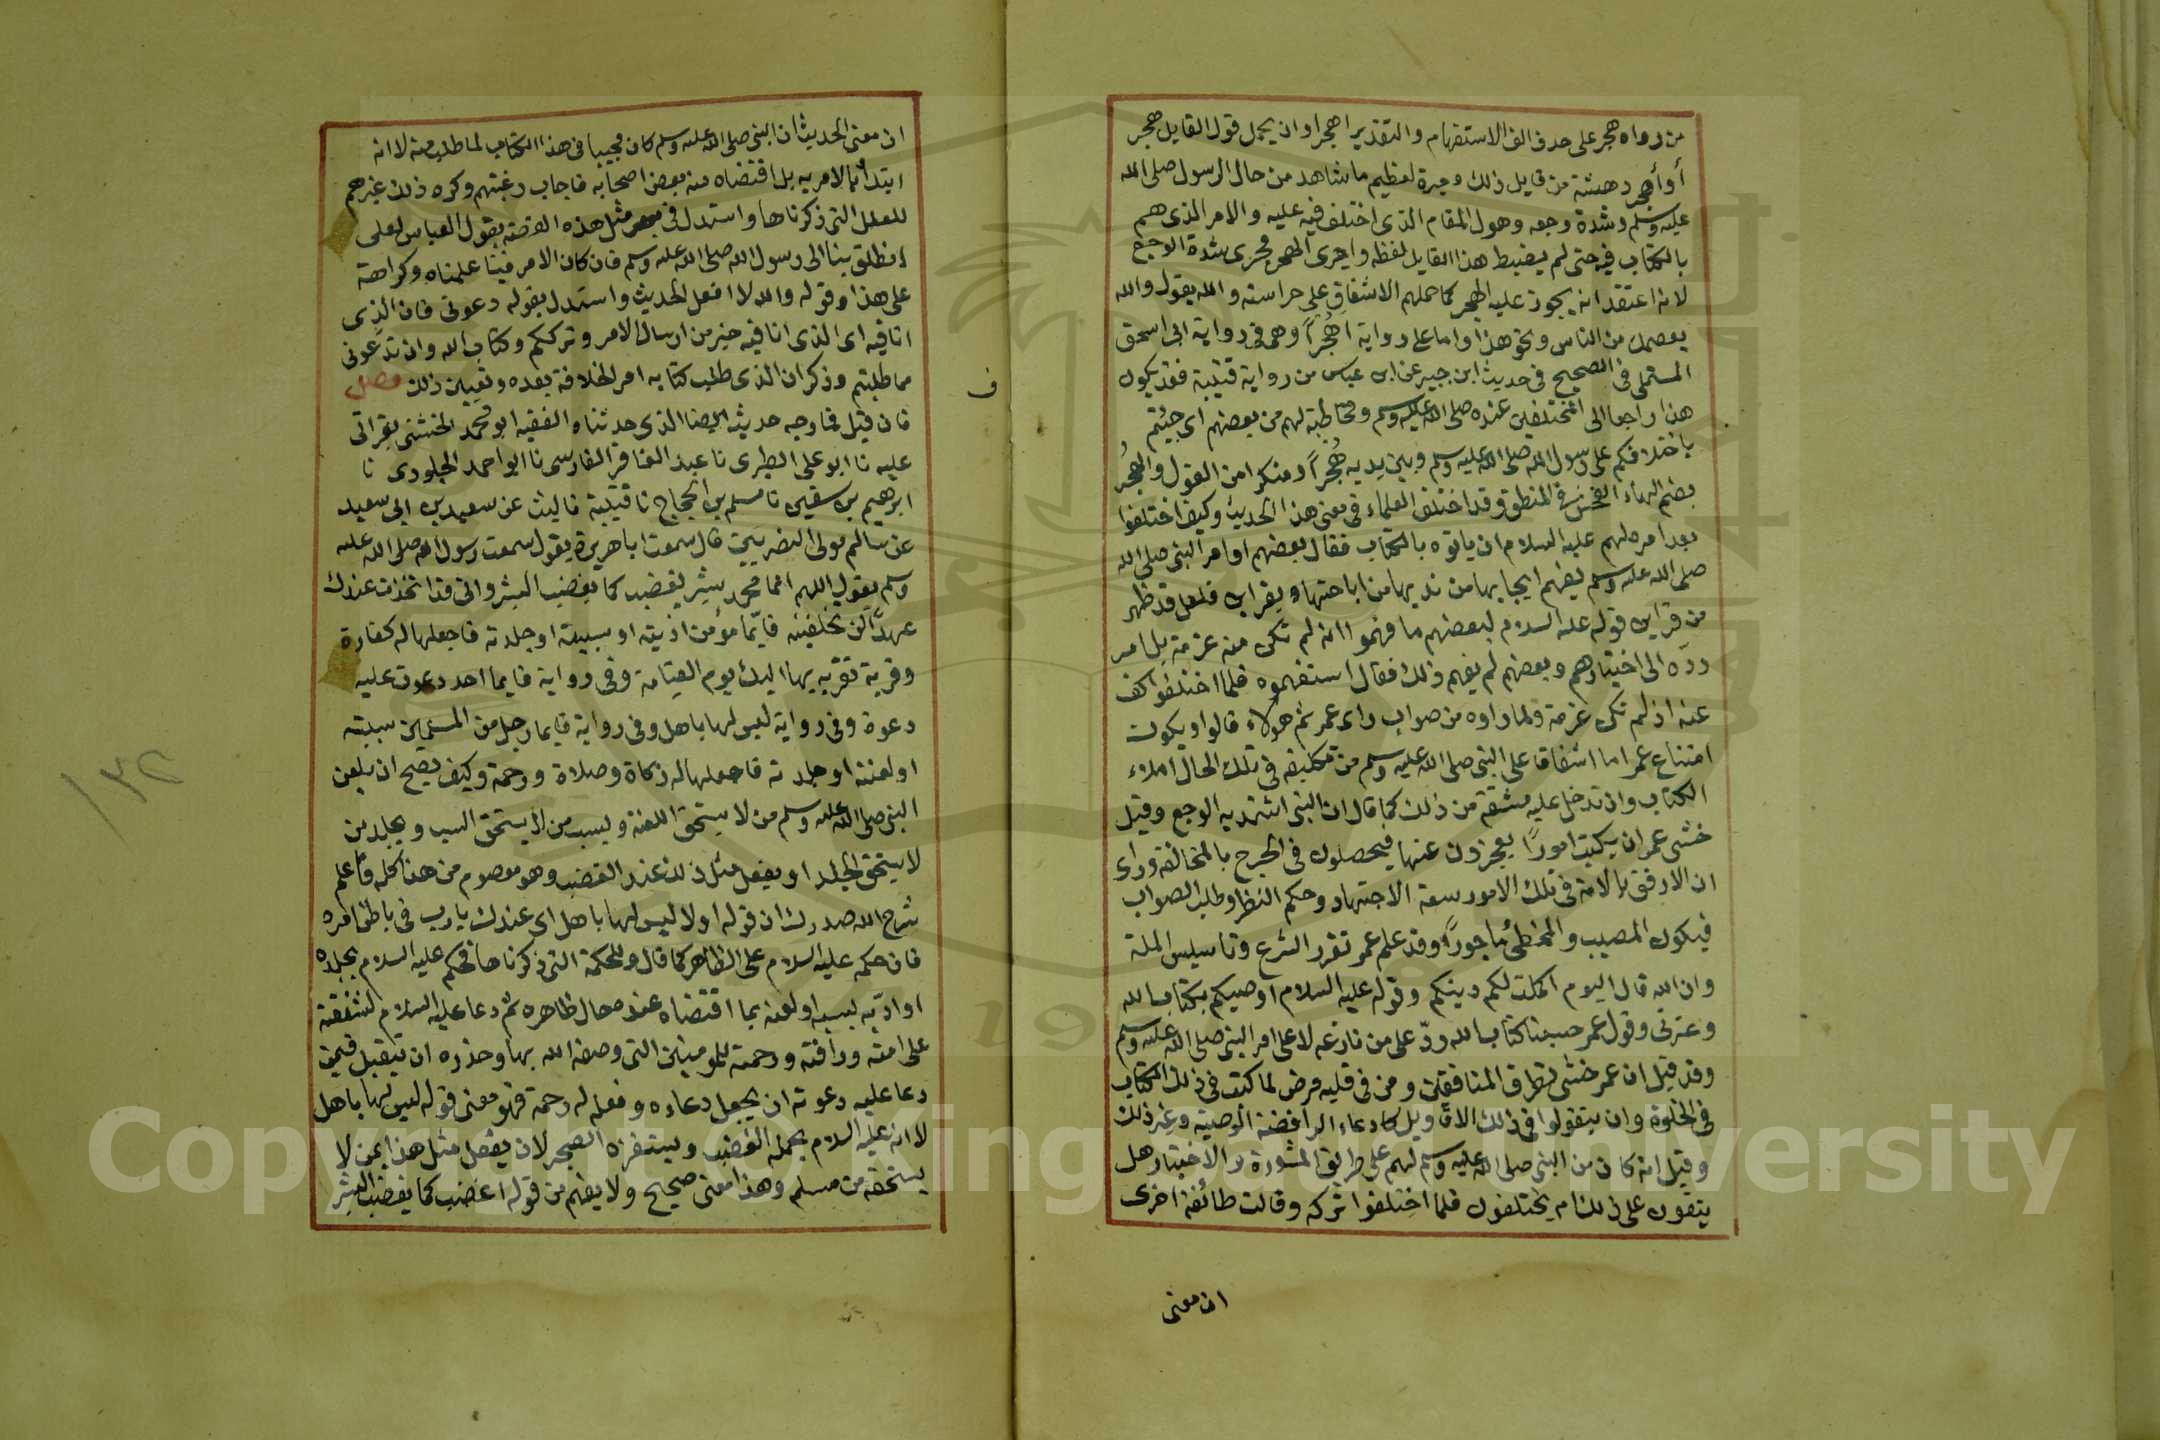 من رواه هجر على حذف الف الاستفهام والتقدير اهجرا وان يحمل قول القايل هجر
أو أهجر دهشة من قايل ذلك وحيرة لعظيم ما شاهد من حال الرسول صلى الله
عليه وسلم وشدة وجعه وهول المقام الذى اختلف فيه عليه والامر الذى هم
بالكتاب فيه حتى لم يضبط هذا القايل لفظه واجرى الهجر مجرى شدة الوجع
لا انه اعتقد انه يجوز عليه الهجر كما حملهم الاشفاق على حراسته والله يقول والله
يعصمك من الناس ونحو هذا واما على رواية اهُجراً وهى فى رواية ابى اسحق
المستملى فى الصحيح فى حديث ابن جبير عن ابن عباس من رواية قتيبة فقد يكون
هذا راجعا الى المختلفين عنده صلى الله عليه وسلم ومخاطبة لهم من بعضهم اى جيتم
باختلافكم على رسول الله صلى الله عليه وسلم وبين يديه هُجراً ومنكرا من القول والهُجر
بضم الهاء الفحش فى المنطق وقد اختلف العلماء فى معنى هذا الحديث وكيف اختلفوا
بعد امره لهم عليه السلام ان ياتوه بالكتاب فقال بعضهم اوامر النبى صلى الله
صلى الله عليه وسلم يفهم ايجابها من ندبها من اباحتها بقراين فلعل قد ظهر
من قراين قوله عليه السلام لبعضهم ما فهموا انه لم تكن منه عزمة بل امر
ردّه الى اختيارهم وبعضهم لم يفهم ذلك فقال استفهموه فلما اختلفوا كف
عنه اذ لم تكن عزمة ولما راوه من صواب راى عمر ثم هولاء قالوا ويكون
امتناع عمر اما اشفاقا على النبى صلى الله عليه وسلم من تكليفه فى تلك الحال املاء
الكتاب وان تدخل عليه مشقة من ذلك كما قال ان النبى اشتد به الوجع وقيل
خشى عمر ان يكتب اموراً يعجزون عنها فيحصلون فى الحرج بالمخالفة وراى
ان الارفق بالامة فى تلك الامور سعة الاجتهاد وحكم النظر وطلب الصواب
فيكون المصيب والمخطئ ماجوراً وقد علم عمر تقرر الشرع وتاسيس الملة
وان الله قال اليوم اكملت لكم دينكم وقوله عليه السلام اوصيكم بكتاب الله
وعترتى وقول عمر حسبنا كتاب الله ردّ على من نازعه لا على امر النبى صلى الله عليه وسلم
وقد قيل ان عمر خشى تطرق المنافقين ومن فى قلبه مرض لما كتب فى ذلك الكتاب
فى الخلوة وان يتقولوا فى ذلك الاقاويل كادعاء الرافضة الوصية وغير ذلك
وقيل انه كان من النبى صلى الله عليه وسلم لهم على طريق المشورة والاختيار هل
يتفقون على ذلك ام يختلفون فلما اختلفوا تركه وقالت طائفة اخرى
ان معنى
ان معنى الحديث ان النبى صلى الله عليه وسلم كان مجيبا فى هذا الكتاب لما طلب منه لا انه
ابتدأ بالامر به بل اقتضاه منه بعض اصحابه فاجاب رغبتهم وكره ذلك غيرهم
للعلل التى ذكرناها واستدل فى مثل هذه القصة بقول العباس لعلى
انطلق بنا الى رسول الله صلى الله عليه وسلم فان كان الامر فينا علمناه وكراهة
على هذا وقوله والله لا افعل الحديث واستدل بقوله دعونى فان الذى
انا فيه اى الذى انا فيه خير من ارسال الامر وترككم وكتاب الله وان تدعونى
مما طلبتم وذكر ان الذى طلب كتابه امر الخلافة بعده وتعيين ذلك فصل
فان قيل فما وجه حديثه ايضا الذى حدثناه الفقيه ابو محمد الخشنى بقراتى
عليه نا ابو على الطبرى نا عبد الغافر الفارسى نا ابو احمد الجلودى نا
ابرهيم بن سفين نا مسلم بن الحجاج نا قتيبة نا ليث عن سعيد بن ابى سعيد
عن سالم مولى النضريين قال سمعت ابا هريرة يقول سمعت رسول الله صلى الله عليه
وسلم يقول اللهم انما محمد بشر يغضب كما يغضب البشر وانى قد اتخذت عندك
عهداً لن تخلفنيه فايّما مؤمن اذيته او سببته او جلدته فاجعلها له كفارة
وقربة تقربه بها اليك يوم القيامة وفى رواية فايما احد دعوت عليه
دعوة وفى رواية ليس لها باهل وفى رواية فايما رجل من المسلمين سببته
او لعنته او جلدته فاجعلها له زكاة وصلاة ورحمة وكيف يصح ان يلعن
النبى صلى الله عليه وسلم من لا يستحق اللعنة ويسب من لا يستحق السب ويجلد من
لا يستحق الجلد او يفعل مثل ذلك عند الغضب وهو معصوم من هذا كله فاعلم
شرح الله صدرك ان قوله اولا ليس لها باهل اى عندك يا رب فى باطن امره
فان حكمه عليه السلام على الظاهر كما قال وللحكمة التى ذكرناها فحكم عليه السلام بجلده
او ادّبه بسبه او لعنه بما اقتضاه عنده حال ظاهره ثم دعا عليه السلام لشفقته
على امته ورافته ورحمته للمومنين التى وصفه الله بها وحذره ان يتقبل فيمن
دعا عليه دعوته ان يجعل دعاءه وفعله له رحمة فهو معنى قوله ليس لها باهل
لا انه عليه السلام يحمله الغضب ويستفزه الضجر لان يفعل مثل هذا بمن لا
يستحقه من مسلم وهذا معنى صحيح ولا يفهم من قوله اغضب كما يغضب البشر
ف
١٣٢
Copyright © King Saud University